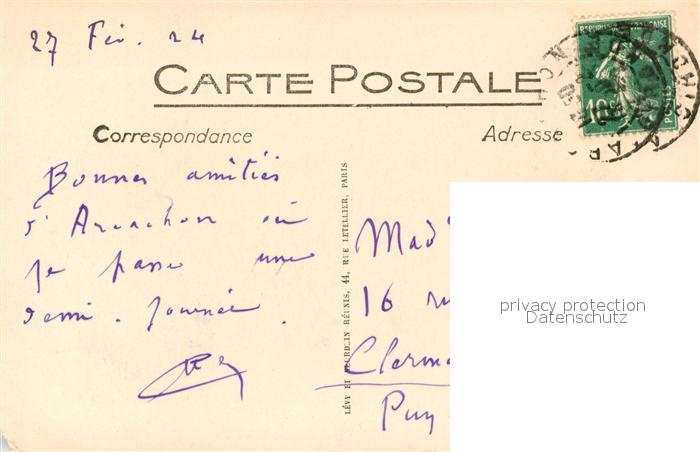 27 Fév. 24
CARTE POSTALE
Correspondance
Adresse
RÉPUBLIQUE FRANÇAISE
10c
POSTES
Bonnes amitiés
d'Arcachon où
je passe une
demi-journée.
LÉVY ET NEURDEIN RÉUNIS, 44, RUE LETELLIER, PARIS
Mad
16 ru
Clerm
Puy
privacy protection
Datenschutz